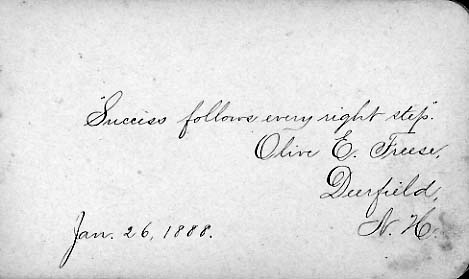 "Success follows every right step."
Olive E. Freese,
Deerfield,
N. H.
Jan. 26, 1888.